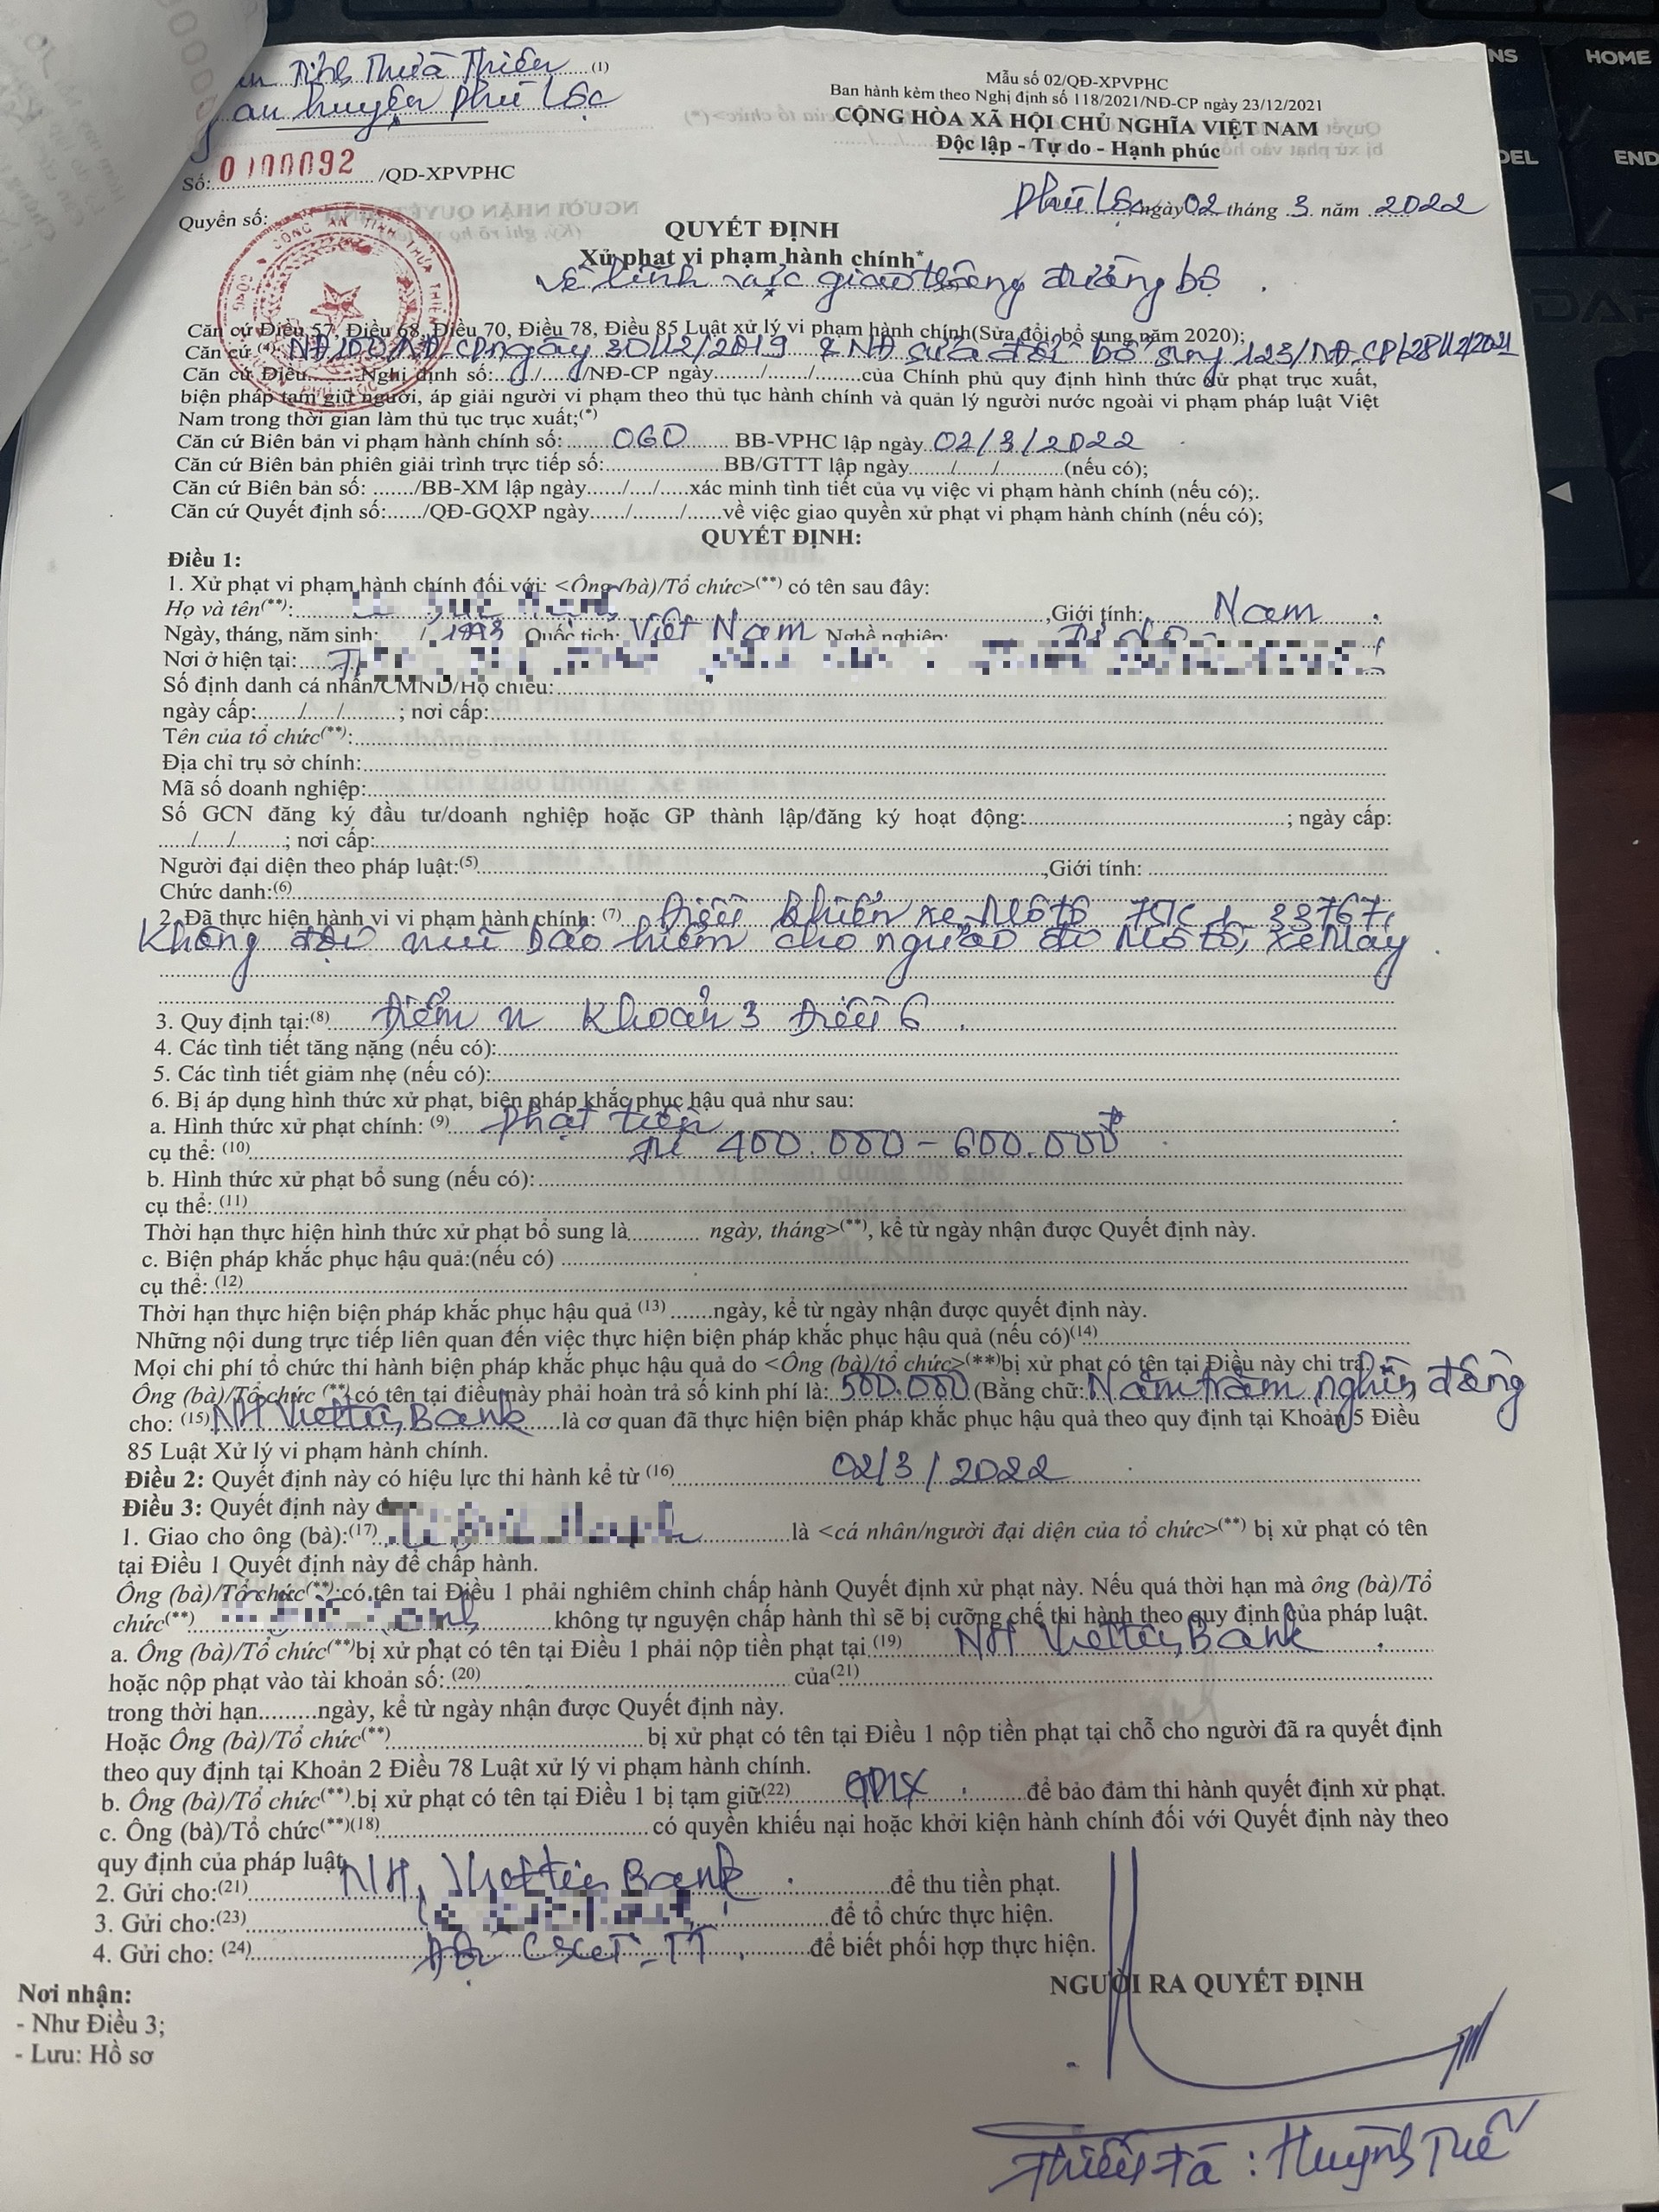 Tỉnh Thừa Thiên (1)
an huyện Phú Lộc
Mẫu số 02/QĐ-XPVPHC
Ban hành kèm theo Nghị định số 118/2021/NĐ-CP ngày 23/12/2021
CỘNG HÒA XÃ HỘI CHỦ NGHĨA VIỆT NAM
Độc lập - Tự do - Hạnh phúc
Số: 0100092 /QD-XPVPHC
Quyển số:
Phú Lộc, ngày 02 tháng 3 năm 2022
QUYẾT ĐỊNH
Xử phạt vi phạm hành chính*
về lĩnh vực giao thông đường bộ.
CÔNG AN TỈNH THỪA THIÊN
Căn cứ Điều 57, Điều 68, Điều 70, Điều 78, Điều 85 Luật xử lý vi phạm hành chính(Sửa đổi, bổ sung năm 2020);
Căn cứ (4): NĐ100/NĐ-CP ngày 30/12/2019 & NĐ sửa đổi bổ sung 123/NĐ-CP/28/12/2021
Căn cứ Điều.......Nghị định số:...../....../NĐ-CP ngày....../....../........của Chính phủ quy định hình thức xử phạt trục xuất,
biện pháp tạm giữ người, áp giải người vi phạm theo thủ tục hành chính và quản lý người nước ngoài vi phạm pháp luật Việt
Nam trong thời gian làm thủ tục trục xuất;(*)
Căn cứ Biên bản vi phạm hành chính số: 060 BB-VPHC lập ngày 02/3/2022
Căn cứ Biên bản phiên giải trình trực tiếp số:..................BB/GTTT lập ngày......./....../..........(nếu có);
Căn cứ Biên bản số: ......./BB-XM lập ngày....../..../.....xác minh tình tiết của vụ việc vi phạm hành chính (nếu có);.
Căn cứ Quyết định số:....../QĐ-GQXP ngày....../......../......về việc giao quyền xử phạt vi phạm hành chính (nếu có);
QUYẾT ĐỊNH:
Điều 1:
1. Xử phạt vi phạm hành chính đối với: <Ông (bà)/Tổ chức>(**) có tên sau đây:
Họ và tên(**): ,Giới tính: Nam.
Ngày, tháng, năm sinh: / 1993 Quốc tịch: Việt Nam Nghề nghiệp:
Nơi ở hiện tại:
Số định danh cá nhân/CMND/Hộ chiếu:
ngày cấp:....../....../.........; nơi cấp:
Tên của tổ chức(**):
Địa chỉ trụ sở chính:
Mã số doanh nghiệp:
Số GCN đăng ký đầu tư/doanh nghiệp hoặc GP thành lập/đăng ký hoạt động:....................; ngày cấp:
....../....../.........; nơi cấp:
Người đại diện theo pháp luật:(5) ,Giới tính:
Chức danh:(6)
2. Đã thực hiện hành vi vi phạm hành chính: (7) Điều khiển xe Mô tô 75K1-33767,
Không đội mũ bảo hiểm cho người đi Mô tô, xe Máy
3. Quy định tại:(8) Điểm n Khoản 3 Điều 6.
4. Các tình tiết tăng nặng (nếu có):
5. Các tình tiết giảm nhẹ (nếu có):
6. Bị áp dụng hình thức xử phạt, biện pháp khắc phục hậu quả như sau:
a. Hình thức xử phạt chính: (9) Phạt tiền
cụ thể: (10) từ 400.000 - 600.000đ
b. Hình thức xử phạt bổ sung (nếu có):
cụ thể: (11)
Thời hạn thực hiện hình thức xử phạt bổ sung là............ ngày, tháng>(**), kể từ ngày nhận được Quyết định này.
c. Biện pháp khắc phục hậu quả:(nếu có)
cụ thể: (12)
Thời hạn thực hiện biện pháp khắc phục hậu quả (13) .......ngày, kể từ ngày nhận được quyết định này.
Những nội dung trực tiếp liên quan đến việc thực hiện biện pháp khắc phục hậu quả (nếu có)(14)
Mọi chi phí tổ chức thi hành biện pháp khắc phục hậu quả do <Ông (bà)/tổ chức>(**)bị xử phạt có tên tại Điều này chi trả.
Ông (bà)/Tổ chức (**) có tên tại điều này phải hoàn trả số kinh phí là: 500.000 (Bằng chữ: Năm trăm nghìn đồng
cho: (15) NH VietTinBank là cơ quan đã thực hiện biện pháp khắc phục hậu quả theo quy định tại Khoản 5 Điều
85 Luật Xử lý vi phạm hành chính.
Điều 2: Quyết định này có hiệu lực thi hành kể từ (16) 02/3/2022
Điều 3: Quyết định này
1. Giao cho ông (bà):(17) là <cá nhân/người đại diện của tổ chức>(**) bị xử phạt có tên
tại Điều 1 Quyết định này để chấp hành.
Ông (bà)/Tổ chức(**) có tên tại Điều 1 phải nghiêm chỉnh chấp hành Quyết định xử phạt này. Nếu quá thời hạn mà ông (bà)/Tổ
chức(**) không tự nguyện chấp hành thì sẽ bị cưỡng chế thi hành theo quy định của pháp luật.
a. Ông (bà)/Tổ chức(**)bị xử phạt có tên tại Điều 1 phải nộp tiền phạt tại (19) NH VietTinBank.
hoặc nộp phạt vào tài khoản số: (20) của(21)
trong thời hạn.........ngày, kể từ ngày nhận được Quyết định này.
Hoặc Ông (bà)/Tổ chức(**) bị xử phạt có tên tại Điều 1 nộp tiền phạt tại chỗ cho người đã ra quyết định
theo quy định tại Khoản 2 Điều 78 Luật xử lý vi phạm hành chính.
b. Ông (bà)/Tổ chức(**).bị xử phạt có tên tại Điều 1 bị tạm giữ(22) GPLX để bảo đảm thi hành quyết định xử phạt.
c. Ông (bà)/Tổ chức(**)(18) có quyền khiếu nại hoặc khởi kiện hành chính đối với Quyết định này theo
quy định của pháp luật.
2. Gửi cho:(21) NH, VietTinBank để thu tiền phạt.
3. Gửi cho:(23) để tổ chức thực hiện.
4. Gửi cho: (24) Đội CSGT-TT để biết phối hợp thực hiện.
NGƯỜI RA QUYẾT ĐỊNH
Nơi nhận:
- Như Điều 3;
- Lưu: Hồ sơ
Thiếu tá: Huỳnh Tuế
HOME
END